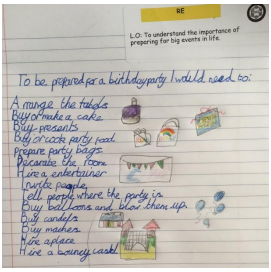 RE
L.O: To understand the importance of
preparing for big events in life.
To be prepared for a birthday party I would need to:
Arange the tables
Buy or make a cake
Buy presents
Buy or cook party food
prepare party bags
Decorate the room
Hire a entertainer
Invite people
Tell people where the party is
Buy balloons and blow them up
Buy candels
Buy maches
Hire a place
Hire a bouncy castle